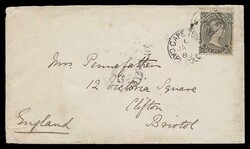 CAPE
Mrs Pennefather
12 Victoria Square
Clifton
Bristol
England